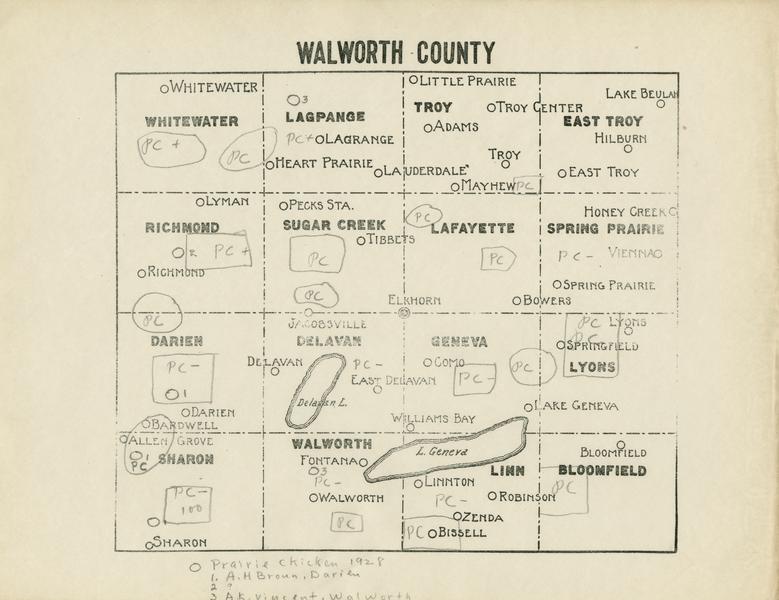 WALWORTH COUNTY
WHITEWATER
WHITEWATER
PC +
PC
3
LAGPANGE
PC+ LAGRANGE
HEART PRAIRIE
LITTLE PRAIRIE
TROY
TROY CENTER
ADAMS
TROY
LAUDERDALE
MAYHEW PC
LAKE BEULAH
EAST TROY
HILBURN
EAST TROY
LYMAN
RICHMOND
2 PC +
RICHMOND
PC
PECKS STA.
SUGAR CREEK
TIBBETS
PC
PC
JACOBSVILLE
PC
LAFAYETTE
PC
ELKHORN
BOWERS
HONEY CREEK
SPRING PRAIRIE
PC - VIENNA
SPRING PRAIRIE
DARIEN
PC -
1
DARIEN
BARDWELL
DELAVAN
DELAVAN
PC -
EAST DELAVAN
Delavan L.
GENEVA
COMO
PC -
PC
WILLIAMS BAY
PC LYONS
PC
SPRINGFIELD
LYONS
LAKE GENEVA
ALLEN GROVE
1
PC
SHARON
PC -
100
SHARON
WALWORTH
FONTANA
3
PC -
WALWORTH
PC
L. Geneva
LINN
LINNTON
PC -
ROBINSON
ZENDA
PC BISSELL
BLOOMFIELD
BLOOMFIELD
PC
Prairie Chicken 1928
1. A.H Broun, Darien
2 ?
3 A.K. Vincent, Walworth